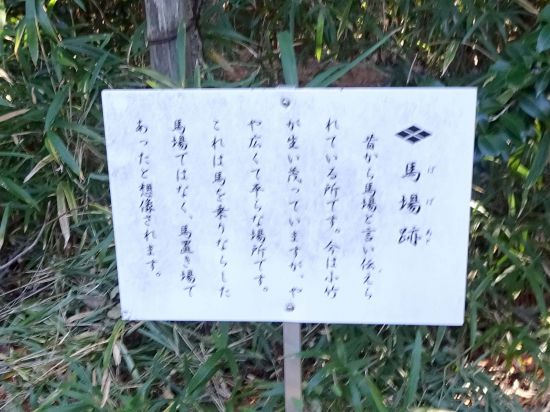 馬場跡
昔から馬場と言い伝えら
れている所です。今は小竹
が生い茂っていますが、や
や広くて平らな場所です。
これは馬を乗りならした
馬場ではなく、馬置き場で
あったと想像されます。